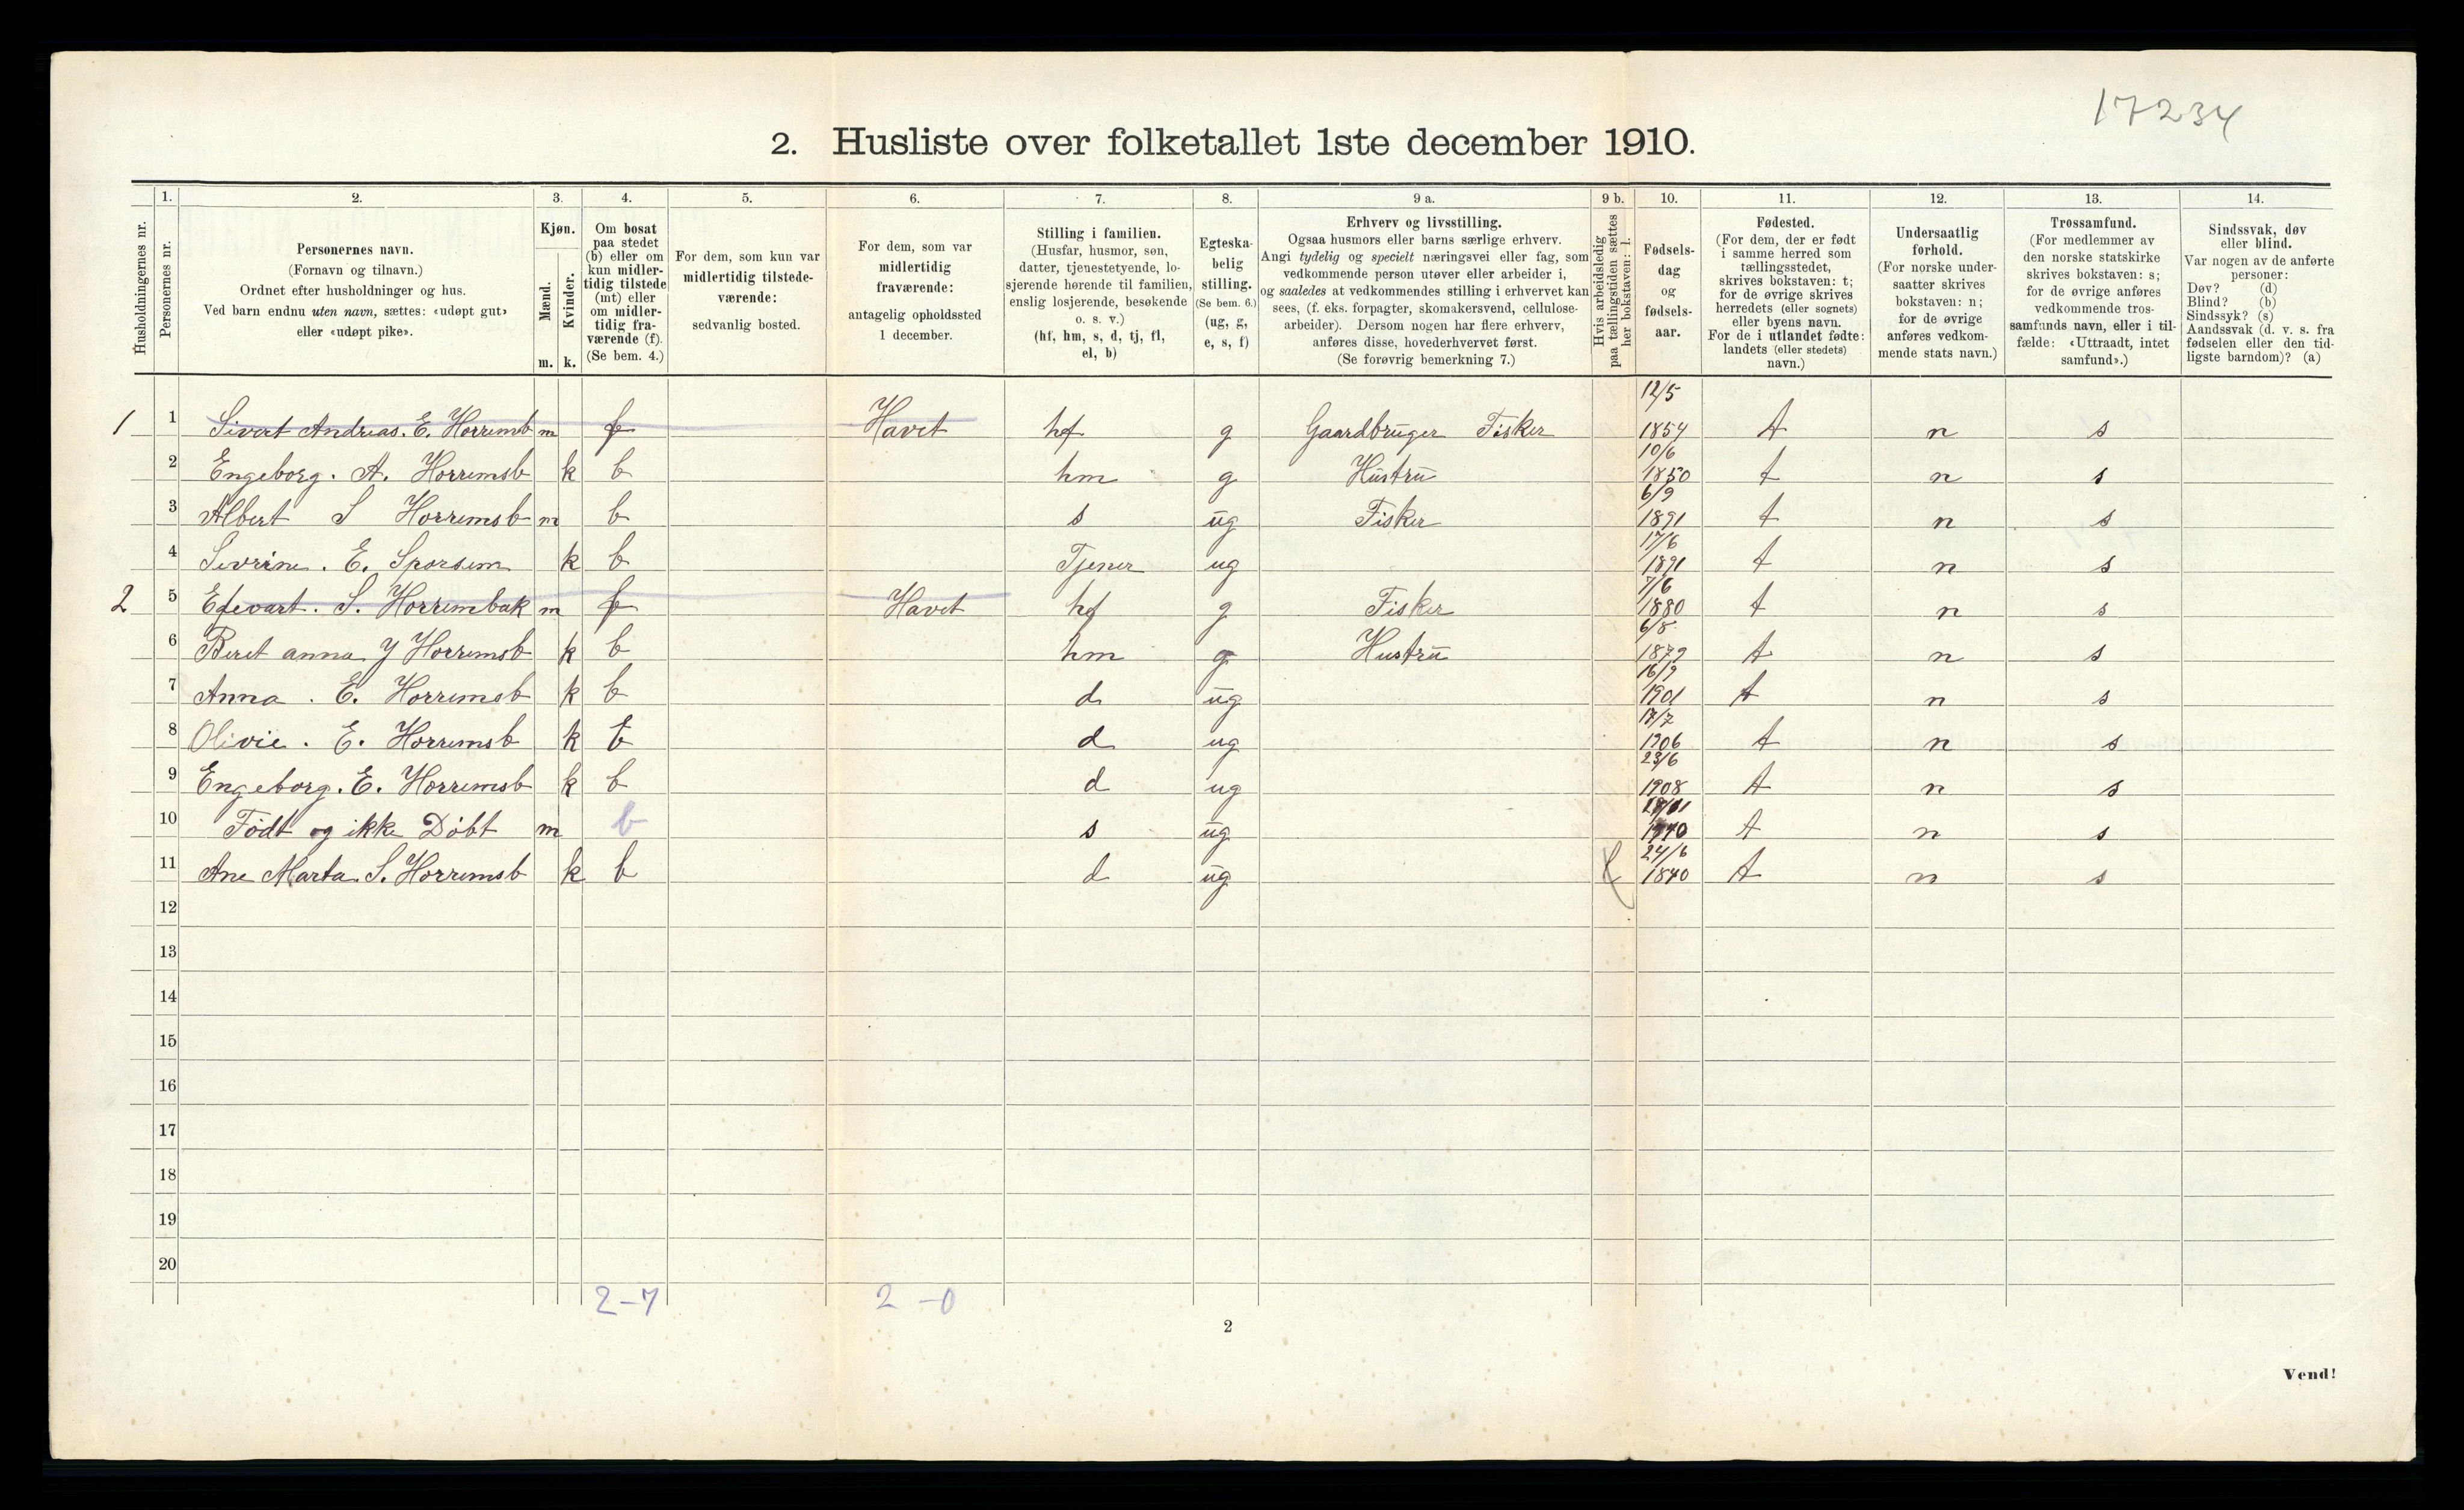 17234
2. Husliste over folketallet 1ste december 1910.
Husholdningernes nr.
1.
Personernes nr.
2.
Personernes navn.
(Fornavn og tilnavn.)
Ordnet efter husholdninger og hus.
Ved barn endnu uten navn, sættes: «udøpt gut»
eller «udøpt pike».
3.
Kjøn.
Mænd.
Kvinder.
m. k.
4.
Om bosat
paa stedet
(b) eller om
kun midler-
tidig tilstede
(mt) eller
om midler-
tidig fra-
værende (f).
(Se bem. 4.)
5.
For dem, som kun var
midlertidig tilstede-
værende:
sedvanlig bosted.
6.
For dem, som var
midlertidig
fraværende:
antagelig opholdssted
1 december.
7.
Stilling i familien.
(Husfar, husmor, søn,
datter, tjenestetyende, lo-
sjerende hørende til familien,
enslig losjerende, besøkende
o. s. v.)
(hf, hm, s, d, tj, fl,
el, b)
8.
Egteska-
belig
stilling.
(Se bem. 6.)
(ug, g,
e, s, f)
9 a.
Erhverv og livsstilling.
Ogsaa husmors eller barns særlige erhverv.
Angi tydelig og specielt næringsvei eller fag, som
vedkommende person utøver eller arbeider i,
og saaledes at vedkommendes stilling i erhvervet kan
sees, (f. eks. forpagter, skomakersvend, cellulose-
arbeider). Dersom nogen har flere erhverv,
anføres disse, hovederhvervet først.
(Se forøvrig bemerkning 7.)
9 b.
Hvis arbeidsledig
paa tællingstiden sættes
her bokstaven: l.
10.
Fødsels-
dag
og
fødsels-
aar.
11.
Fødested.
(For dem, der er født
i samme herred som
tællingsstedet,
skrives bokstaven: t;
for de øvrige skrives
herredets (eller sognets)
eller byens navn.
For de i utlandet fødte:
landets (eller stedets)
navn.)
12.
Undersaatlig
forhold.
(For norske under-
saatter skrives
bokstaven: n;
for de øvrige
anføres vedkom-
mende stats navn.)
13.
Trossamfund.
(For medlemmer av
den norske statskirke
skrives bokstaven: s;
for de øvrige anføres
vedkommende tros-
samfunds navn, eller i til-
fælde: «Uttraadt, intet
samfund».)
14.
Sindssvak, døv
eller blind.
Var nogen av de anførte
personer:
Døv? (d)
Blind? (b)
Sindssyk? (s)
Aandssvak (d. v. s. fra
fødselen eller den tid-
ligste barndom)? (a)
1 1 Sivert Andreas. E. Horremb m f Havet hf g Gaardbruger Fisker 12/5 1854 t n s
2 Engeborg. A. Horremsb k b hm g Hustru 10/6 1850 t n s
3 Albert S Horremsb m b s ug Fisker 6/9 1891 t n s
4 Sevrine. E. Sporsem k b Tjener ug 17/6 1891 t n s
2 5 Edevart. S. Horrembak m f Havet hf g Fisker 7/6 1880 t n s
6 Beret anna J Horremsb k b hm g Hustru 6/8 1879 t n s
7 Anna. E. Horremsb k b d ug 16/9 1901 t n s
8 Olivie. E. Horremsb k b d ug 17/7 1906 t n s
9 Engeborg. E. Horremsb k b d ug 23/6 1908 t n s
10 Födt og ikke Döbt m b s ug t n s
11 Ane Marta S. Horremsb k b d ug 24/6 1840 t n s
12
13
14
15
16
17
18
19
20
2-7 2-0
2
Vend!